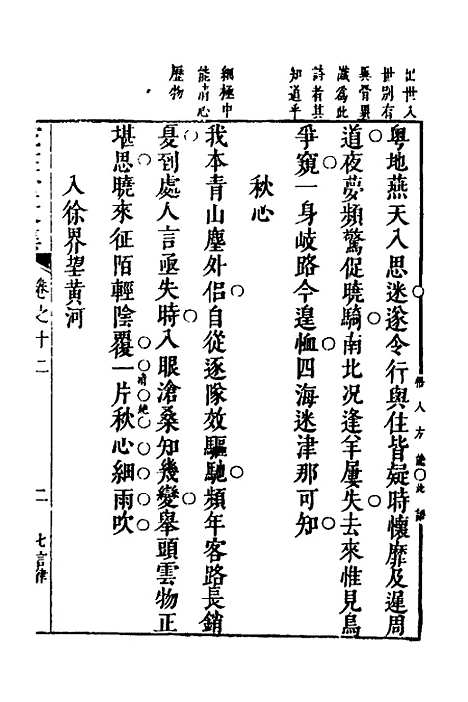 出世入
世別有
異骨畢
識爲此
詩者其
知道乎
粵地燕天入思迷遂令行與住皆疑時懷靡及遑周
悟人方說此語
道夜夢頻驚促曉騎南北况逢羊屢失去來惟見鳥
爭窺一身岐路今遑恤四海迷津那可知
秋心
細極中
能肖心
歷物
我本青山塵外侶自從逐隊效驅馳頻年客路長銷
憂到處人言亟失時入眼滄桑知幾變舉頭雲物正
堪思曉來征陌輕陰覆一片秋心細雨吹
清絶
入徐界望黃河
卷之十二
二
七言律